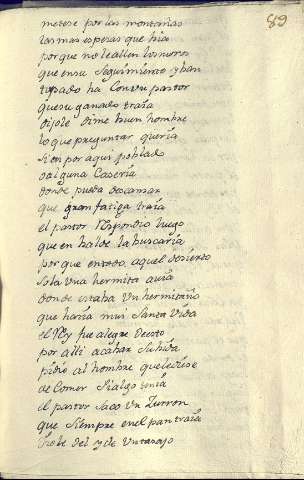 89
metese por las montañas
las mas esperas que hia
porque no le allen los moros
que en su seguimiento yban
topado ha con vn pastor
que su ganado traia
dijole dime buen hombre
lo que preguntar queria
si ay por aqui poblado
o alguna caseria
donde pueda descansar
que gran fatiga traia
el pastor respondio luego
que en balde la buscaria
por que en todo aquel desierto
sola vna hermita auia
donde estaba vn hermitaño
que haria mui santa vida
el Rey fue alegre desto
por alli acabar su vida
pidio al hombre que le diese
de comer si algo tenia
el pastor saco vn zurron
que siempre en el pan traia
diole del y de vn tasajo